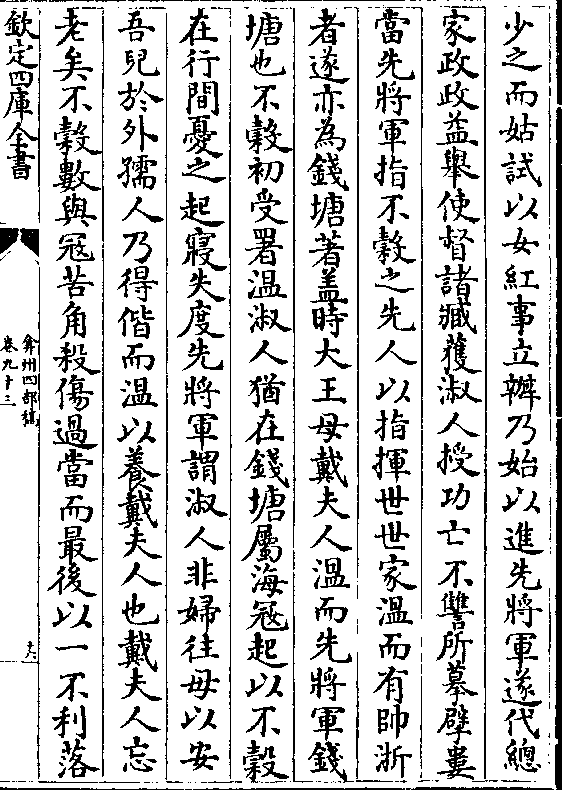 少之而姑試以女紅事立辦乃始以進先將軍遂代總
家政政益舉使督諸臧獲淑人授功亡不讐所摹擘婁
當先將軍指不榖之先人以指揮世世家溫而有帥浙
者遂亦為錢塘著蓋時大王母戴夫人溫而先將軍錢
塘也不榖初受署温淑人猶在錢塘屬海冦起以不榖
在行間憂之起寢失度先將軍謂淑人非婦往毋以安
吾兒於外孺人乃得偕而温以養戴夫人也戴夫人忘
老矣不榖數與冦苦角殺傷過當而最後以一不利落
欽定四庫全書
弇州四部稿
卷九十三
十六